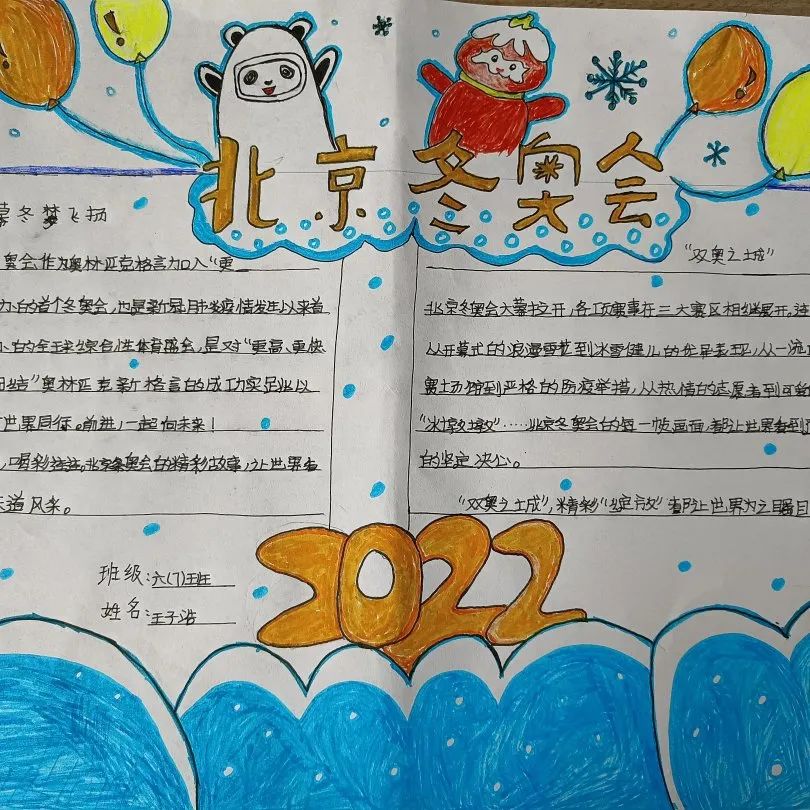 北京冬奥会
冬梦飞扬
奥会作为奥林匹克格言加入“更
办的首个冬奥会,也是新冠肺炎疫情发生以来首
办的全球综合性体育盛会,是对“更高、更快
团结”奥林匹克新格言的成功实践以
世界同行。前进,一起向未来!
喝彩连连,北京冬奥会的精彩故事,让世界看
风采。
“双奥之城”
北京冬奥会大幕拉开,各项赛事在三大赛区相继展开。
从开幕式的浪漫雪花到冰雪健儿的优异表现,从一流
赛场馆到严格的防疫举措,从热情的志愿者到可爱
“冰墩墩”……北京冬奥会的每一帧画面,都让世界看到
的坚定决心。
“双奥之城”,精彩“绽放”都让世界为之瞩目
班级:六(7)班
姓名:王子浩
2022